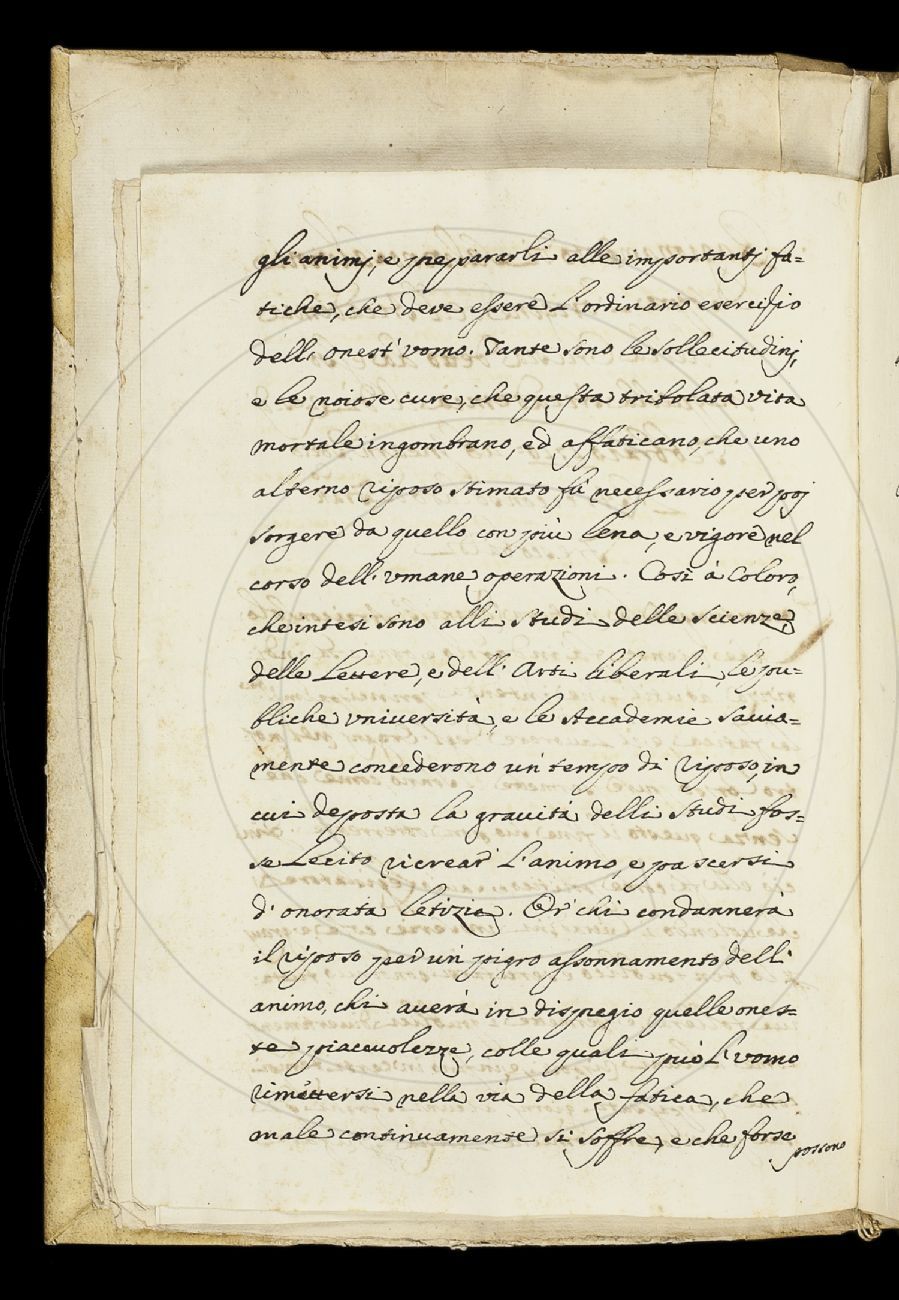 gli animj, e prepararli alle importantj fa=
tiche, che deve essere l'ordinario esercizio
dell' onest' vomo. Tante sono le sollecitudinj,
e le noiose cure, che questa tribolata vita
mortale ingombrano, ed affaticano, che uno
alterno riposo stimato fù necessario per poj
sorgere da quello con più lena, e vigore nel
corso dell' vmane operazioni. Così à Coloro,
che intesi sono alli Studi delle Scienze,
delle Lettere, e dell' Arti liberali, le pu=
bliche vniversità, e le Accademie savia=
mente concederono un tempo di riposo, in
cui deposta la gravità delli Studi fos=
se Lecito ricrear l'animo, e pascersi
d' onorata letizia. Or chi condannerà
il riposo per un pigro assonnamento dell'
animo, chi averà in dispregio quelle ones=
te piacevolezze, colle quali può l'vomo
rimettersi nella via della fatica, che
male continuamente si soffre, e che forse
possono